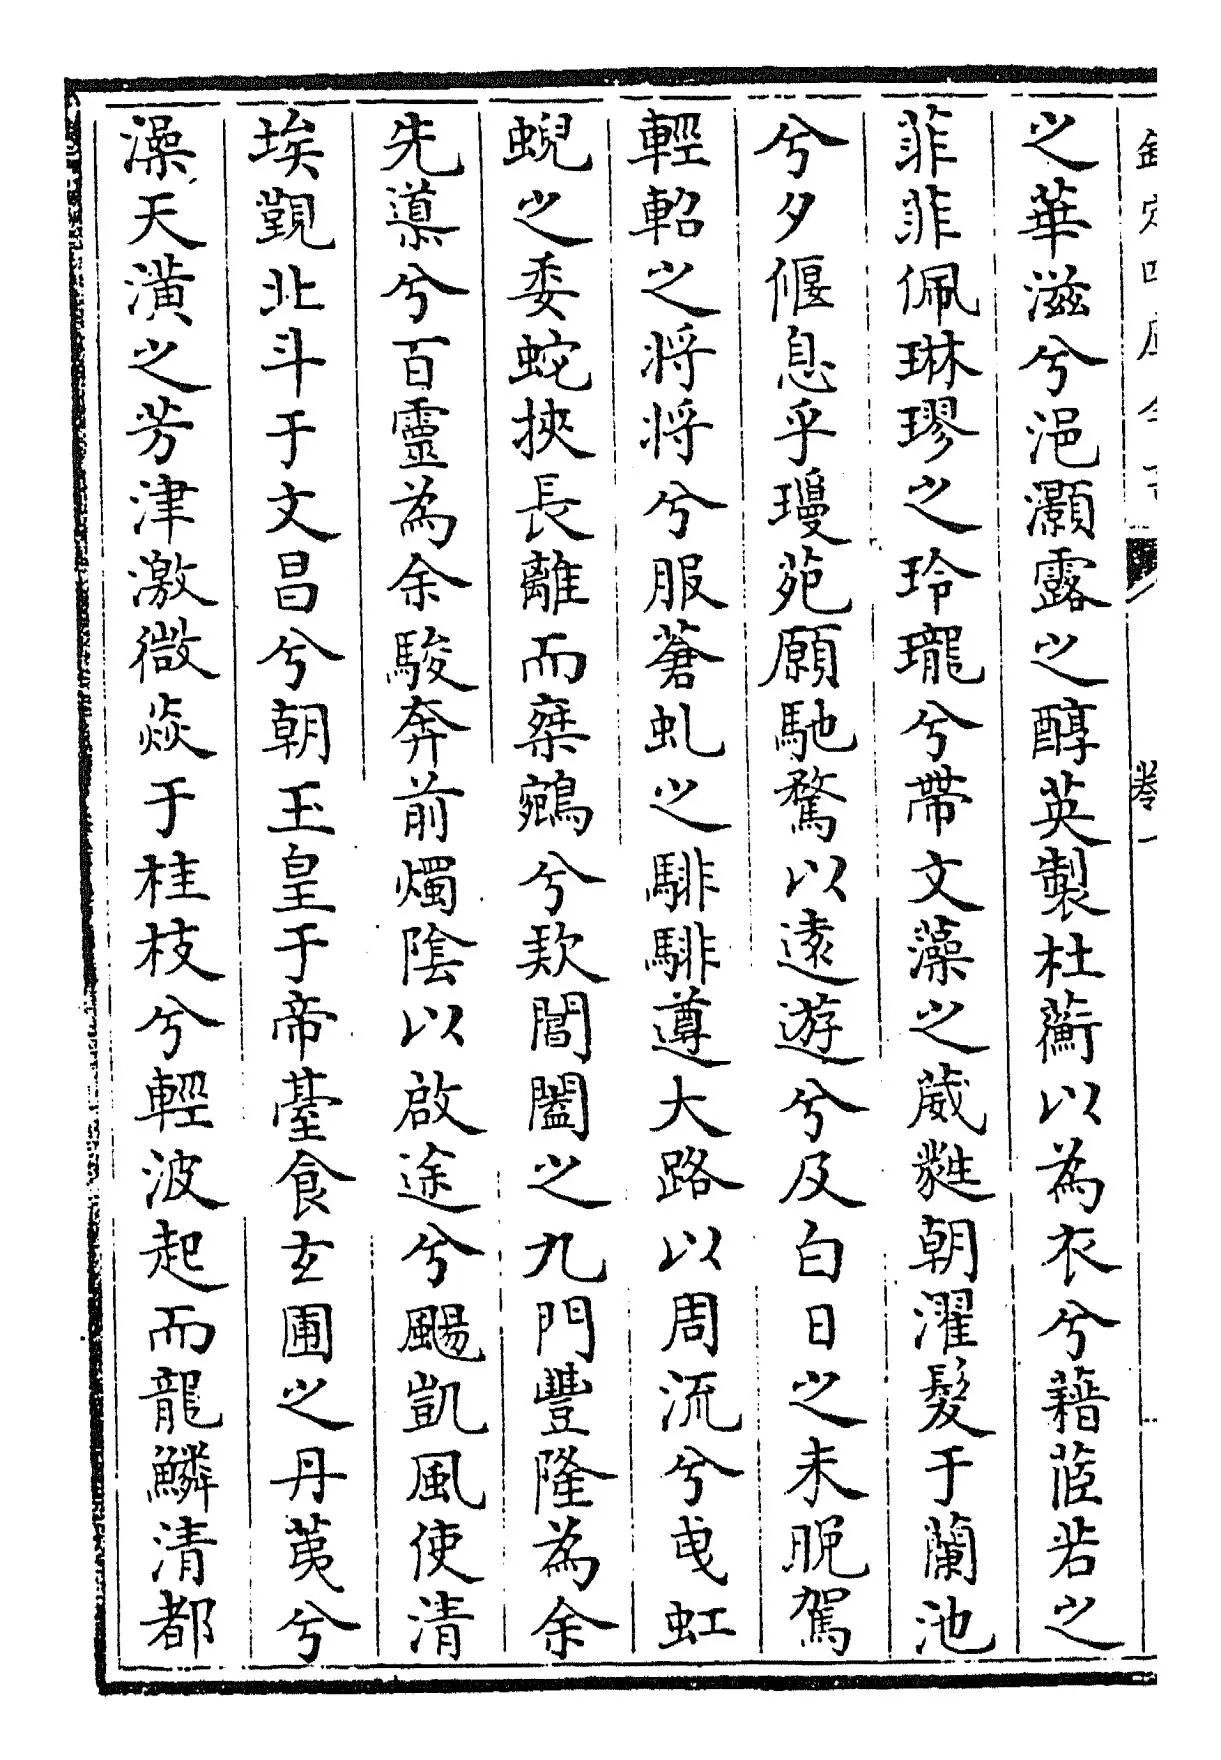 欽定四庫全書
卷一
之華滋兮浥灝露之醇英製杜蘅以為衣兮藉茝若之
菲菲佩琳璆之玲瓏兮帶文藻之葳蕤朝濯髮于蘭池
兮夕偃息乎瓊苑願馳騖以逺遊兮及白日之未晚駕
輕軺之將將兮服蒼虬之騑騑遵大路以周流兮曵虹
蜺之委蛇挾長離而椉鵷兮欵閶闔之九門豐隆為余
先導兮百靈為余駿奔前燭陰以啟途兮颺凱風使清
埃覲北斗于文昌兮朝玉皇于帝臺食玄圃之丹荑兮
澡天潢之芳津激微焱于桂枝兮輕波起而龍鱗清都